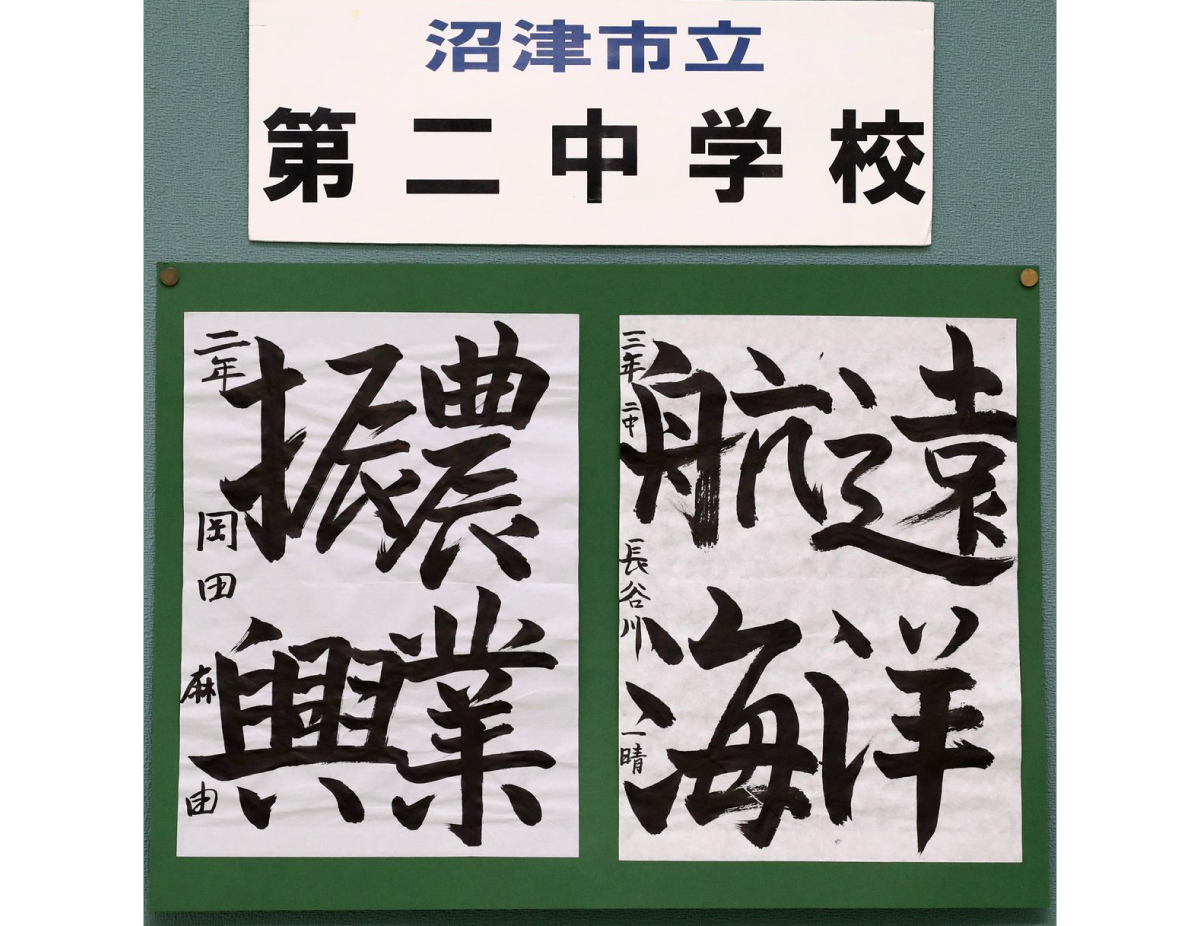 沼津市立
第二中学校
遠洋
航海
三年 二中 長谷川 一晴
農業
振興
二年 岡田 麻由